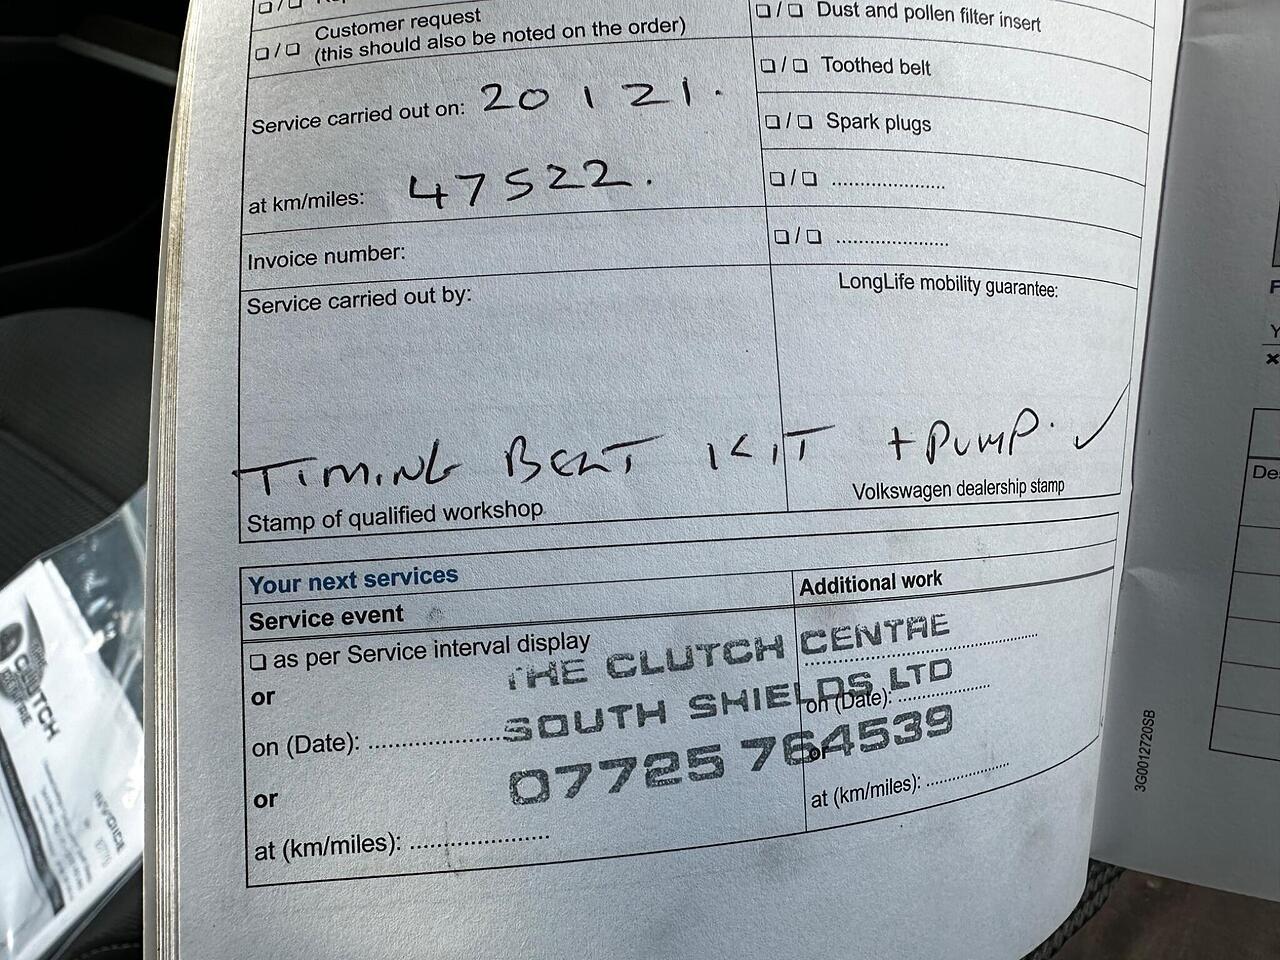 Customer request
(this should also be noted on the order)
Service carried out on: 20 1 21.
at km/miles: 47522.
Invoice number:
Service carried out by:
Dust and pollen filter insert
Toothed belt
Spark plugs
LongLife mobility guarantee:
TIMING BELT KIT + PUMP. ✓
Stamp of qualified workshop
Volkswagen dealership stamp
Your next services
Service event
Additional work
as per Service interval display
or
on (Date):
or
at (km/miles):
on (Date):
or
at (km/miles):
THE CLUTCH CENTRE
SOUTH SHIELDS LTD
07725 764539
3G0012720SB
De
CLUTCH
INVOICE